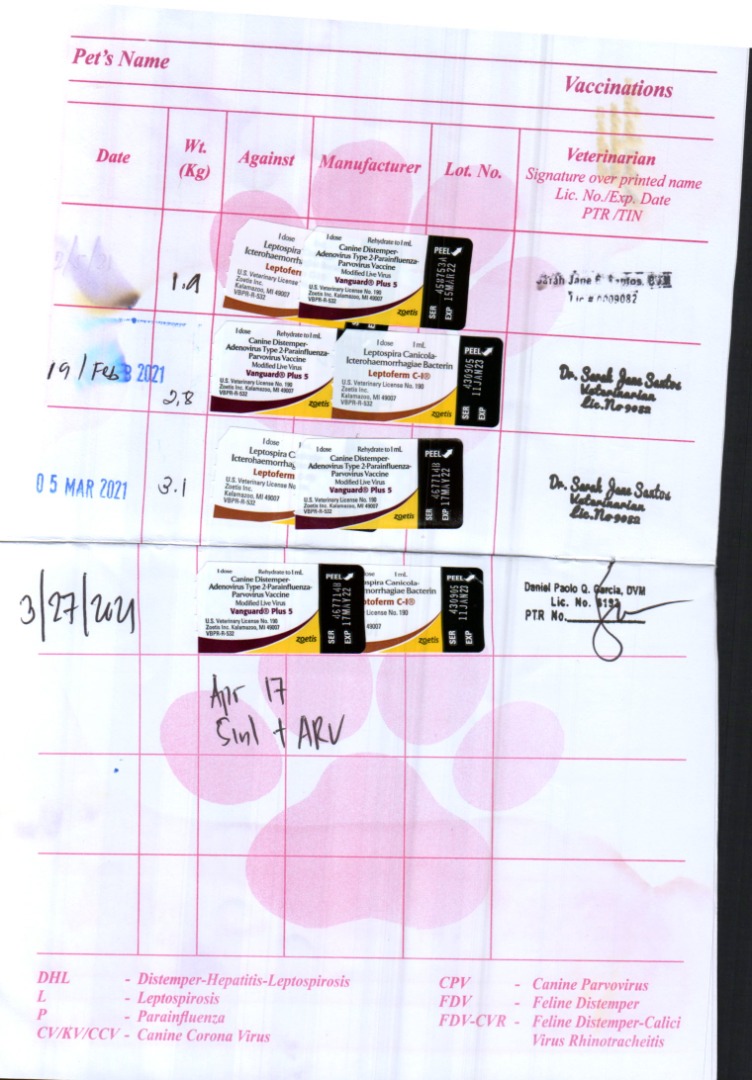 Pet's Name
Vaccinations
Date
Wt.
(Kg)
Against
Manufacturer
Lot. No.
Veterinarian
Signature over printed name
Lic. No./Exp. Date
PTR /TIN
1.9
1 dose
Leptospira
Icterohaemorrh
Leptoferm
U.S. Veterinary License
Zoetis Inc.
Kalamazoo, MI 49007
VBPR-R-532
1 dose Rehydrate to 1 mL
Canine Distemper-
Adenovirus Type 2-Parainfluenza-
Parvovirus Vaccine
Modified Live Virus
Vanguard® Plus 5
U.S. Veterinary License No. 190
Zoetis Inc.
Kalamazoo, MI 49007
VBPR-R-532
zoetis
PEEL
SER 458753A
EXP 15MAR22
Sarah Jane
19 / Feb 2021
2.8
1 dose Rehydrate to 1 mL
Canine Distemper-
Adenovirus Type 2-Parainfluenza-
Parvovirus Vaccine
Modified Live Virus
Vanguard® Plus 5
U.S. Veterinary License No. 190
Zoetis Inc. Kalamazoo, MI 49007
VBPR-R-532
zoetis
1 dose 1 mL
Leptospira Canicola-
Icterohaemorrhagiae Bacterin
Leptoferm C-I®
U.S. Veterinary License No. 190
Zoetis Inc.
Kalamazoo, MI 49007
VBPR-R-532
zoetis
PEEL
SER 430905
EXP 11JAN23
Dr. Sarah Jane Santos
Veterinarian
Lic. No 9082
05 MAR 2021
3.1
1 dose
Leptospira C
Icterohaemorrhag
Leptoferm
U.S. Veterinary License No
Zoetis Inc.
Kalamazoo, MI 49007
VBPR-R-532
1 dose Rehydrate to 1 mL
Canine Distemper-
Adenovirus Type 2-Parainfluenza-
Parvovirus Vaccine
Modified Live Virus
Vanguard® Plus 5
U.S. Veterinary License No. 190
Zoetis Inc. Kalamazoo, MI 49007
VBPR-R-532
zoetis
PEEL
SER 457714B
EXP 17MAY22
Dr. Sarah Jane Santos
Veterinarian
Lic. No 9082
3/27/2021
1 dose Rehydrate to 1 mL
Canine Distemper-
Adenovirus Type 2-Parainfluenza-
Parvovirus Vaccine
Modified Live Virus
Vanguard® Plus 5
U.S. Veterinary License No. 190
Zoetis Inc. Kalamazoo, MI 49007
VBPR-R-532
zoetis
PEEL
SER 457714B
EXP 17MAY22
1 mL
spira Canicola-
morrhagiae Bacterin
toferm C-I®
License No. 190
49007
zoetis
PEEL
SER 430905
EXP 11JAN23
Daniel Paolo Q. Garcia, DVM
Lic. No. 6192
PTR No.
Apr 17
5in1 + ARV
DHL - Distemper-Hepatitis-Leptospirosis
L - Leptospirosis
P - Parainfluenza
CV/KV/CCV - Canine Corona Virus
CPV - Canine Parvovirus
FDV - Feline Distemper
FDV-CVR - Feline Distemper-Calici
Virus Rhinotracheitis